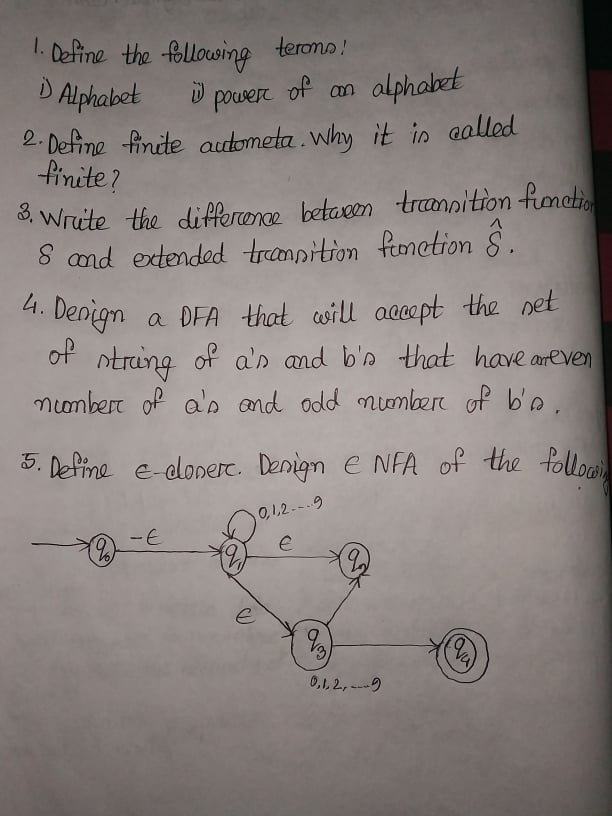 1. Define the following terms:
i) Alphabet ii) power of an alphabet
2. Define finite autometa. Why it is called
finite?
3. Write the difference between transition function
δ and extended transition function δ̂.
4. Design a DFA that will accept the set
of string of a's and b's that have are even
number of a's and odd number of b's.
5. Define ε-closer. Design ε NFA of the following
0,1,2----9
-ε
ε
q₀
q₁
q₂
ε
q₃
q₄
0,1,2,----9